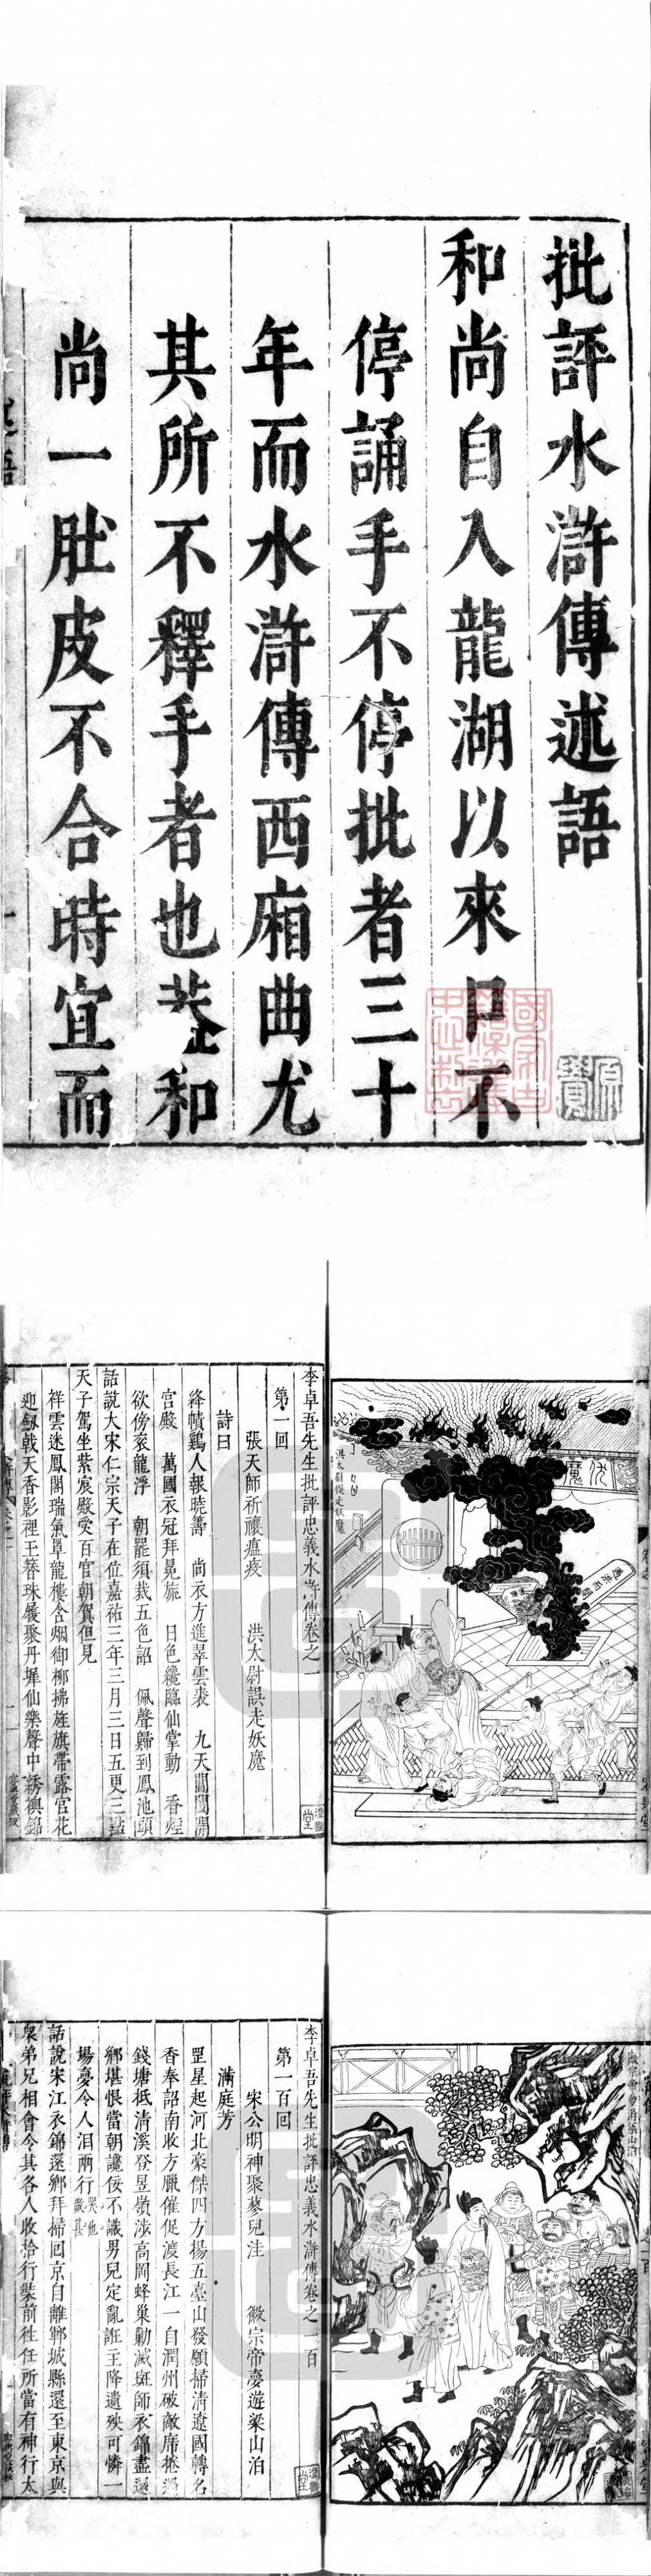 批評水滸傳述語
和尚自入龍湖以來口不
停誦手不停批者三十
年而水滸傳西廂曲尤
其所不釋手者也蓋和
尚一肚皮不合時宜而
伏魔
遇洪而開
洪太尉悞走妖魔
李卓吾先生批評忠義水滸傳卷之一
第一回
張天師祈禳瘟疫 洪太尉誤走妖魔
詩曰
絳幘鷄人報曉籌 尚衣方進翠雲裘 九天閶闔開
宮殿 萬國衣冠拜冕旒 日色纔臨仙掌動 香烟
欲傍袞龍浮 朝罷須裁五色詔 佩聲歸到鳳池頭
話說大宋仁宗天子在位嘉祐三年三月三日五更三點
天子駕坐紫宸殿受百官朝賀但見
祥雲迷鳳閣瑞氣罩龍樓含烟御柳拂旌旗帶露宮花
迎劔戟天香影裡玉簪珠履聚丹墀仙樂聲中綉襖錦
徽宗帝夢遊梁山泊
李卓吾先生批評忠義水滸傳卷之一百
第一百回
宋公明神聚蓼兒洼 徽宗帝夢遊梁山泊
滿庭芳
罡星起河北豪傑四方揚五臺山發願掃清遼國轉名
香奉詔南收方臘催促渡長江一自潤州破敵席捲過
錢塘抵清溪登昱嶺涉高岡蜂巢勦滅班師衣錦盡還
鄉堪恨當朝讒佞不識男兒定亂誑主降遺殃可憐一
場憂令人泪兩行
話說宋江衣錦還鄉拜掃回京自離鄆城縣還至東京與
衆弟兄相會令其各人收拾行裝前往任所當有神行太